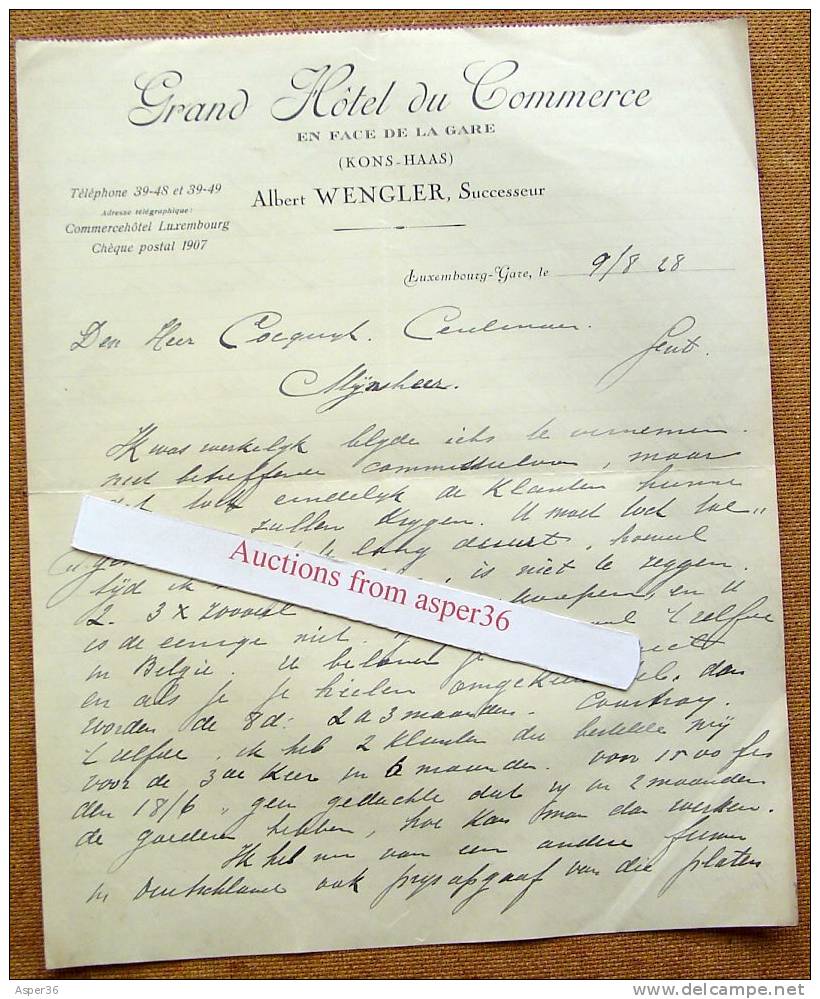 Grand Hôtel du Commerce
EN FACE DE LA GARE
(KONS-HAAS)
Albert WENGLER, Successeur
Téléphone 39-48 et 39-49
Adresse télégraphique:
Commercehôtel Luxembourg
Chèque postal 1907
Luxembourg-Gare, le 9/8 28
Den Heer Cocquyt. Ceulemans.
Gent.
Mynheer.
Ik was werkelyk blyde iets te vernemen.
niet betreffende, maar
dat eindelyk de Klanten hunne
zullen Krygen. U moet toch toe"
lang duurt, hoeveel
is niet te zeggen.
tyd ik en U
2. 3 x zooveel 't zelfde
is de eenige niet.
in Belgie. U
en als je je hielen omgekeerd, dan
worden de 8d: 2 a 3 maanden. Courtray.
't zelfde, ik heb 2 Klanten die bestelde my
voor de 3de Keer in 6 maanden. voor 1500 frs
den 18/6, geen gedachte dat zy in 2 maanden
de goederen hebben, hoe Kan man dan werken.
Ik heb nu van een andere firma
in Deutschland ook prysopgaaf van die platen
Auctions from asper36
Asper36
www.delcampe.net